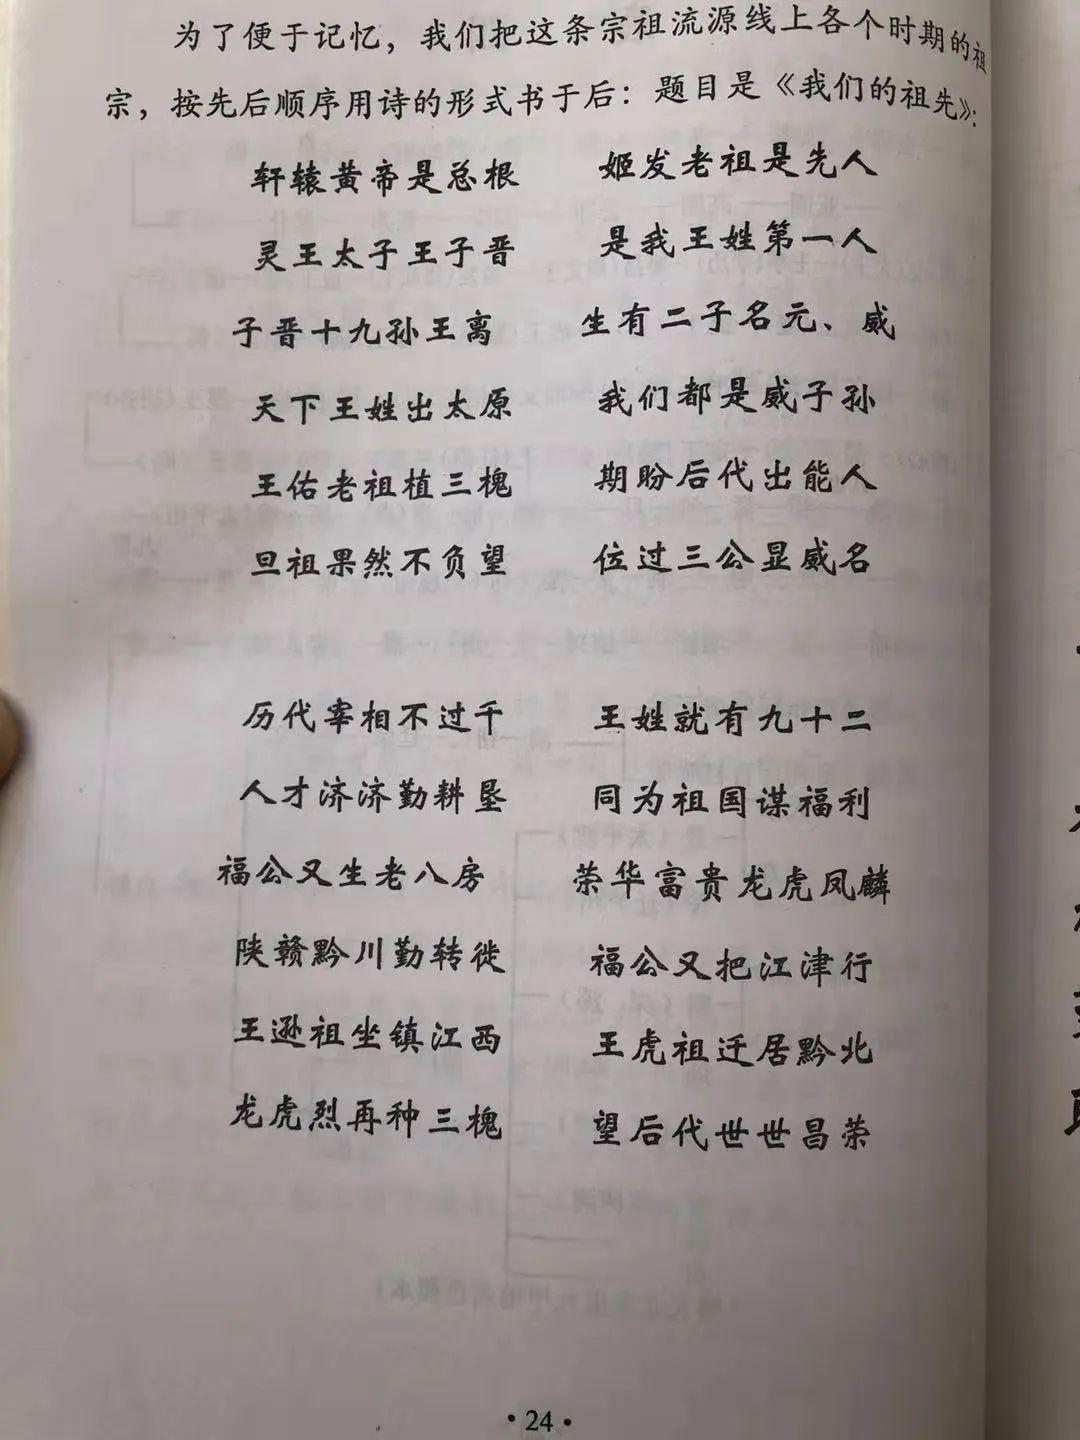 为了便于记忆，我们把这条宗祖流源线上各个时期的祖
宗，按先后顺序用诗的形式书于后：题目是《我们的祖先》：
轩辕黄帝是总根 姬发老祖是先人
灵王太子王子晋 是我王姓第一人
子晋十九孙王离 生有二子名元、威
天下王姓出太原 我们都是威子孙
王佑老祖植三槐 期盼后代出能人
旦祖果然不负望 位过三公显威名
历代宰相不过千 王姓就有九十二
人才济济勤耕垦 同为祖国谋福利
福公又生老八房 荣华富贵龙虎凤麟
陕赣黔川勤转徙 福公又把江津行
王逊祖坐镇江西 王虎祖迁居黔北
龙虎烈再种三槐 望后代世世昌荣
·24·